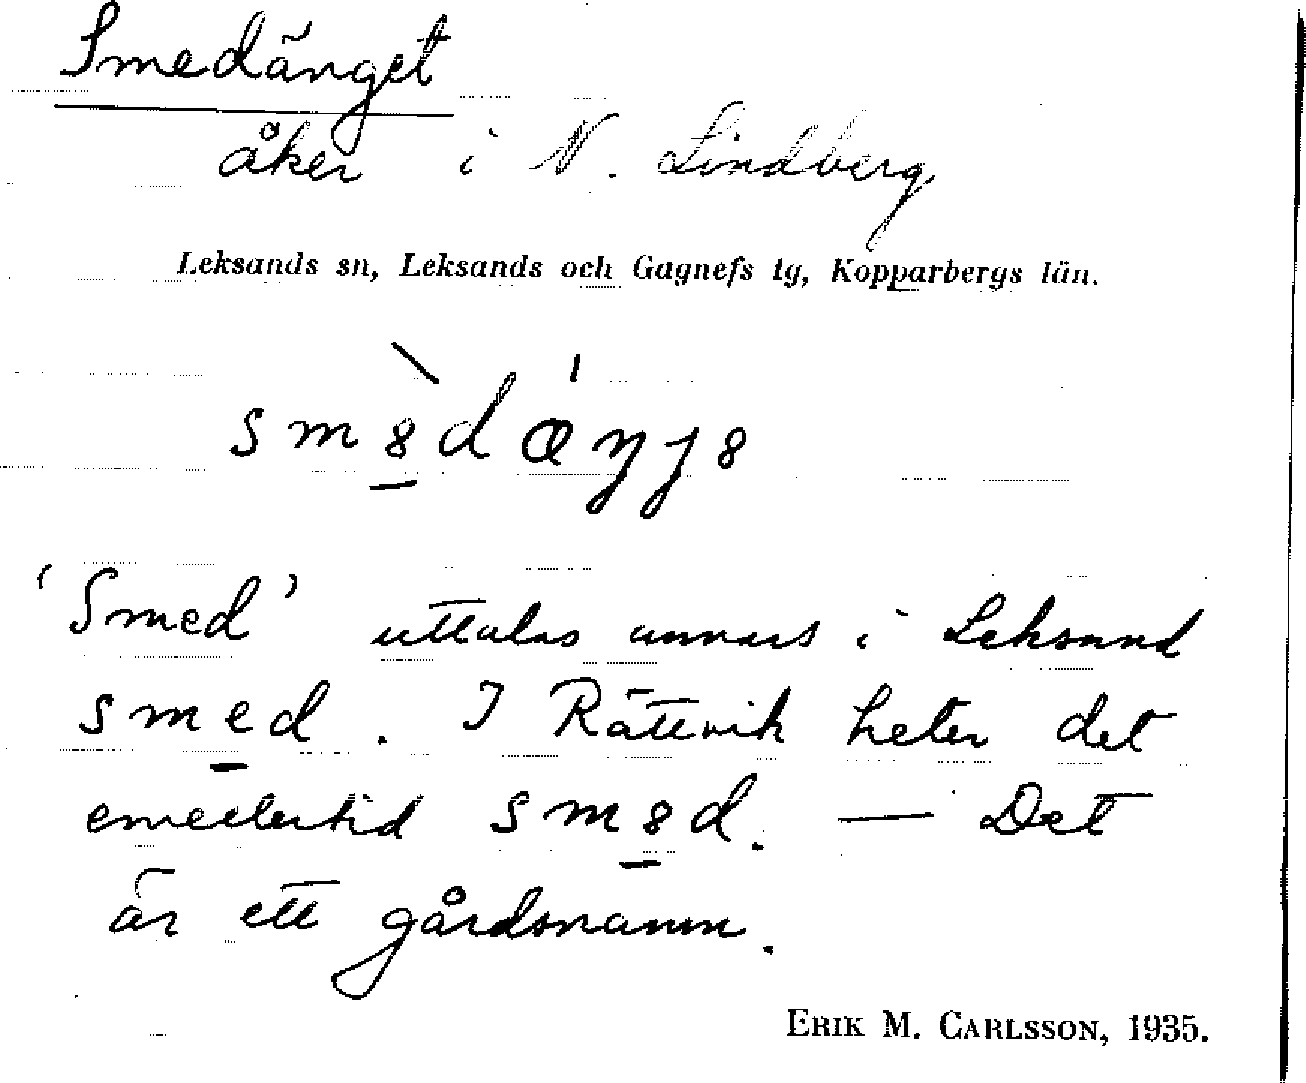 Smedänget
åker i N. Lindberg
Leksands sn, Leksands och Gagnefs tg, Kopparbergs län.
'Smed' uttalas annars i Leksand
smed. I Rättvik heter det
emellertid sm8d. — Det
är ett gårdsnamn.
ERIK M. CARLSSON, 1935.